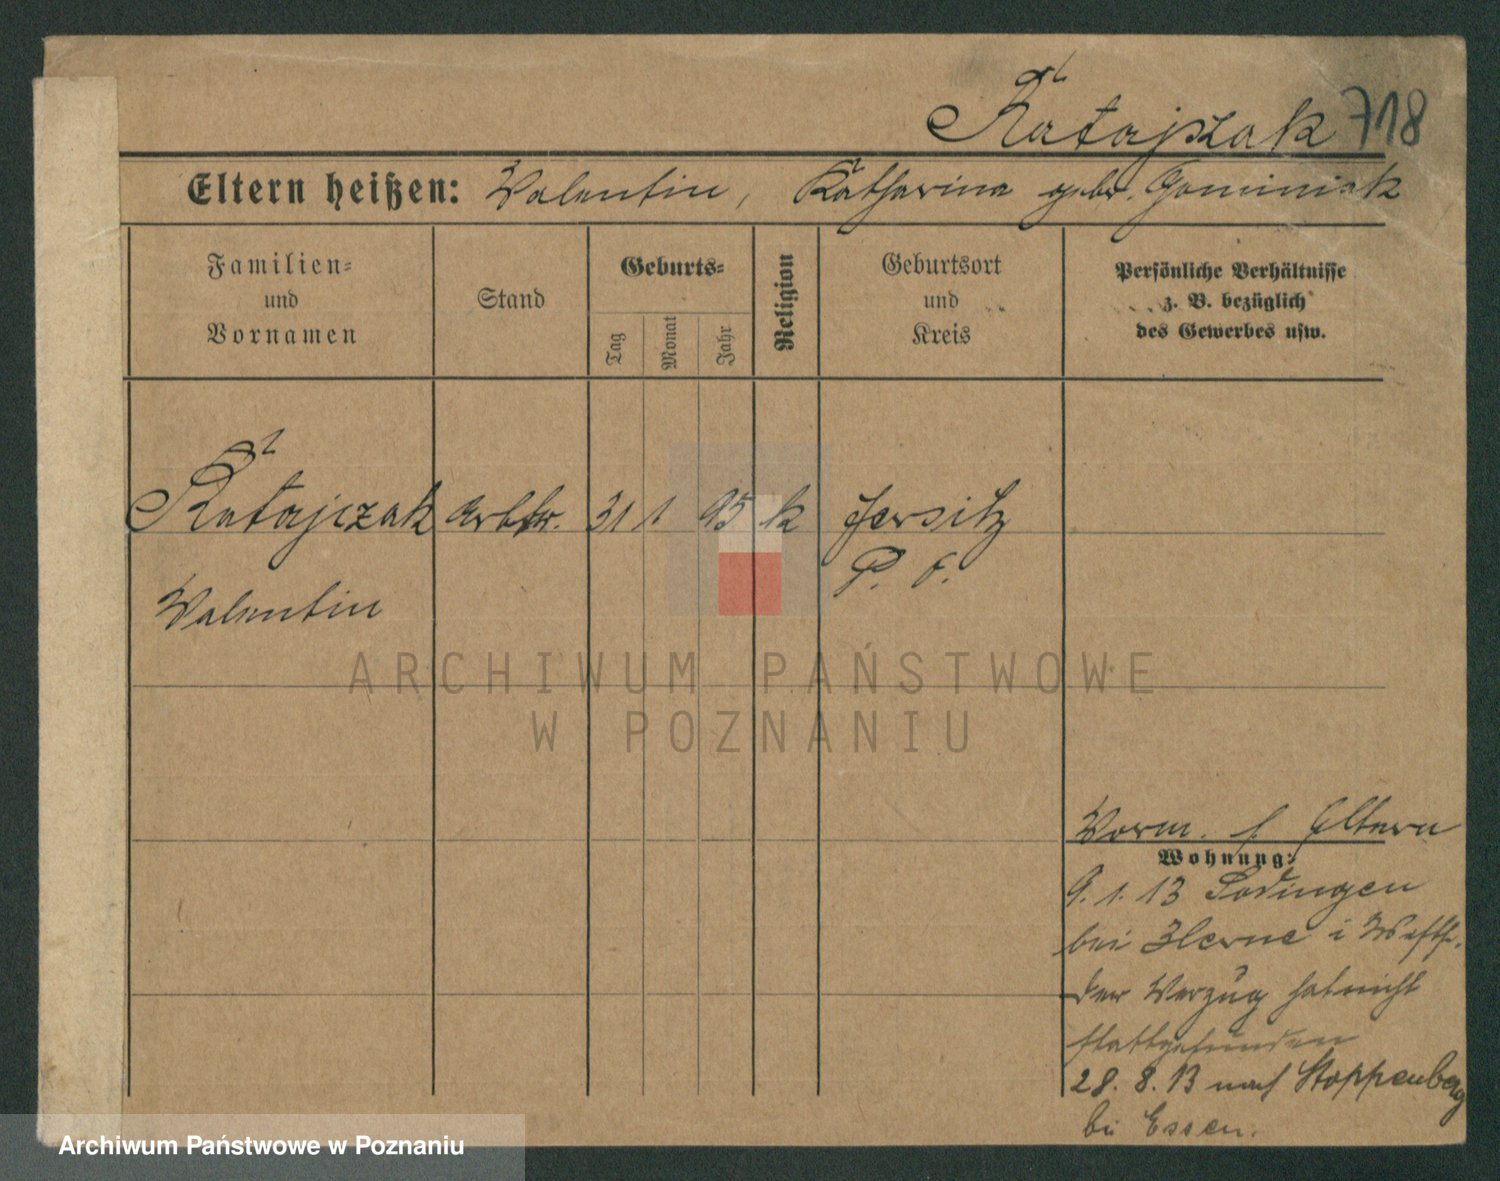 Ratajszak 718
Eltern heißen: Valentin, Katharina gebr. Gominiak
Familien-
und
Vornamen
Stand
Geburts-
Tag
Monat
Jahr
Religion
Geburtsort
und
Kreis
Persönliche Verhältnisse
z. B. bezüglich
des Gewerbes usw.
Ratajczak Arbtr. 31 1. 95 k Jersitz
P. O.
Valentin
ARCHIWUM PAŃSTWOWE
W POZNANIU
Vorm. s. Eltern
Wohnung:
9. 1. 13 Sodingen
bei Herne i Westf.
der Verzug hat nicht
stattgefunden
28. 8. 13 nach Stoppenberg
bei Essen.
Archiwum Państwowe w Poznaniu